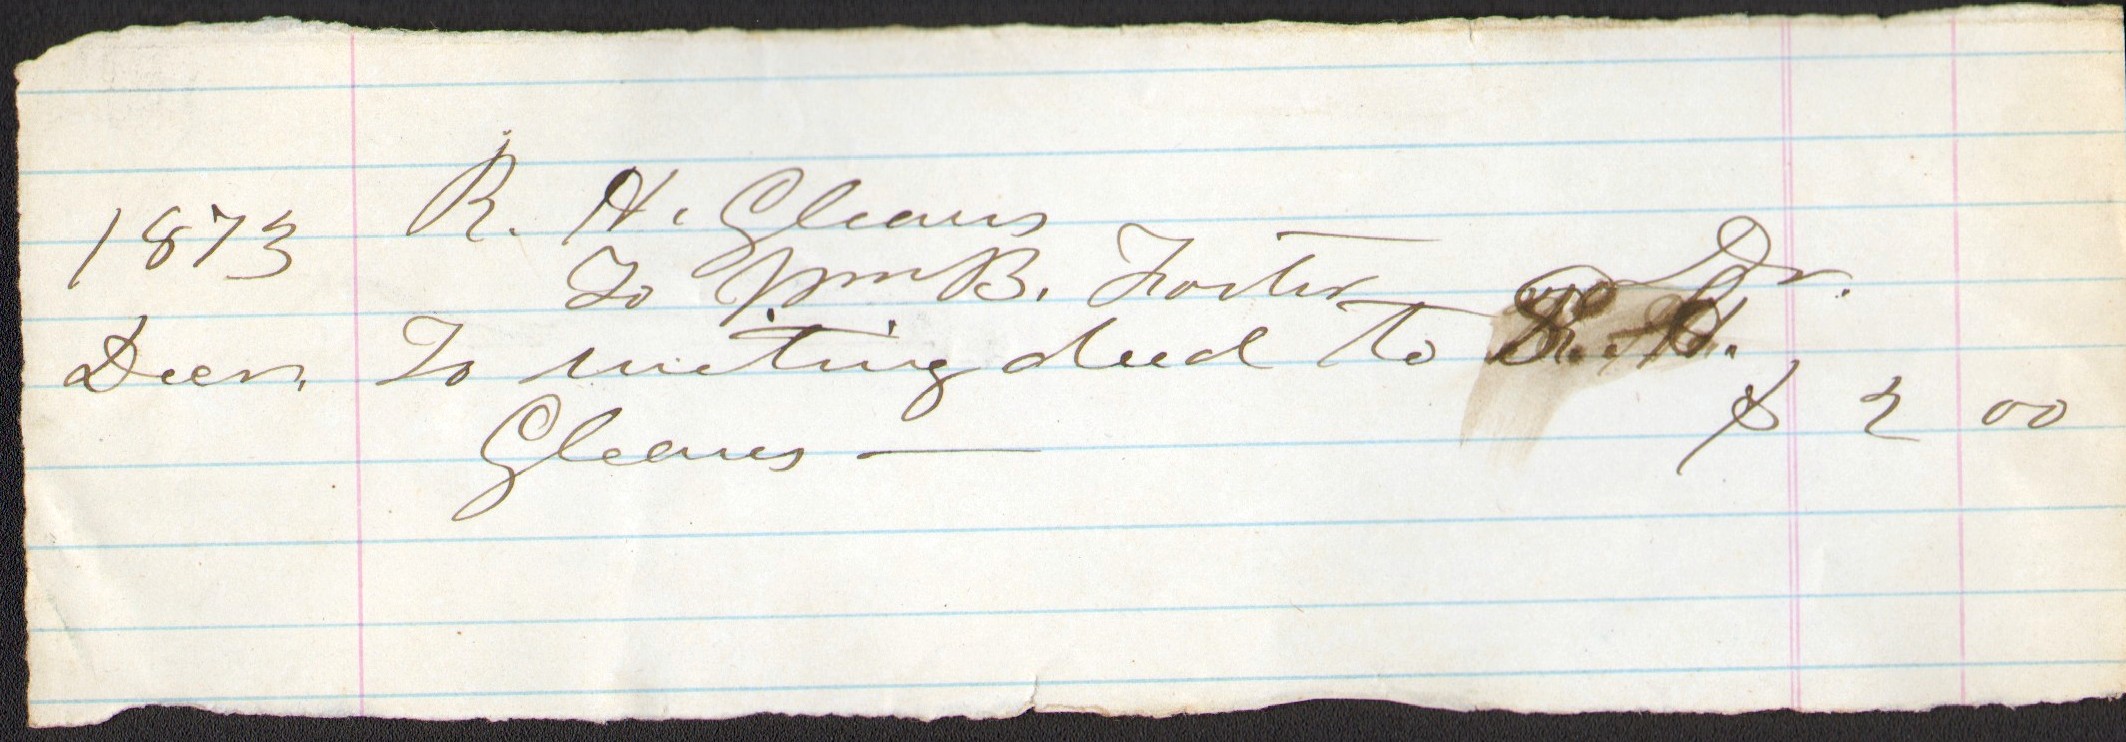 1873 R. H. Gleaves
To Wm B. Foster Dr.
Decr. To writing deed to H.
Gleaves — $ 2 00